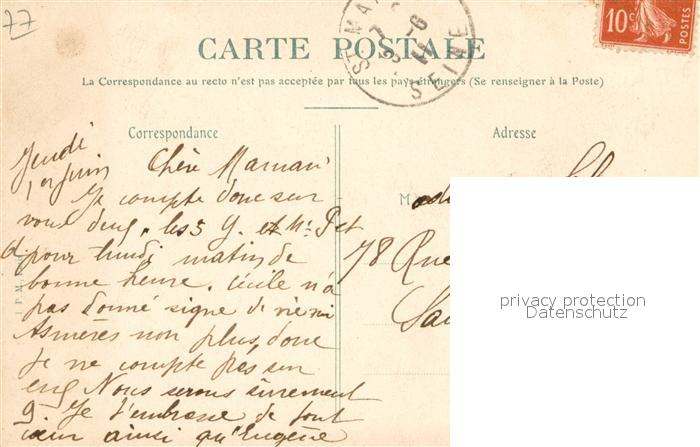 77
CARTE POSTALE
La Correspondance au recto n'est pas acceptée par tous les pays étrangers (Se renseigner à la Poste)
Correspondance
Adresse
10c
POSTES
ST MA
SEINE
Jeudi
1er Juin
Chère Maman
Je compte donc sur
vous deux, les 5 G. et Mr P et
d pour lundi matin de
bonne heure. Cécile n'a
pas donné signe de vie ni
Asnières non plus, donc
je ne compte pas sur
eux Nous serons sûrement
9. Je t'embrasse de tout
cœur ainsi qu'Eugène
M
78 Rue
privacy protection
Datenschutz